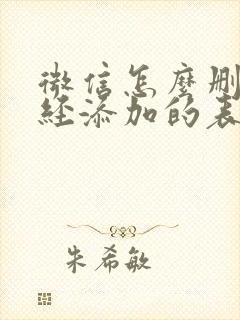 微信怎麼刪
經添加的表
朱希敏